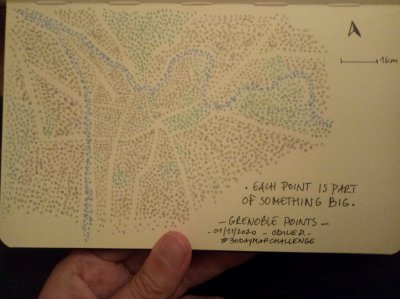 1km
. EACH POINT IS PART
OF SOMETHING BIG .
- GRENOBLE POINTS -
- 01/11/2020 - ODILE D. -
#30DAYMAPCHALLENGE